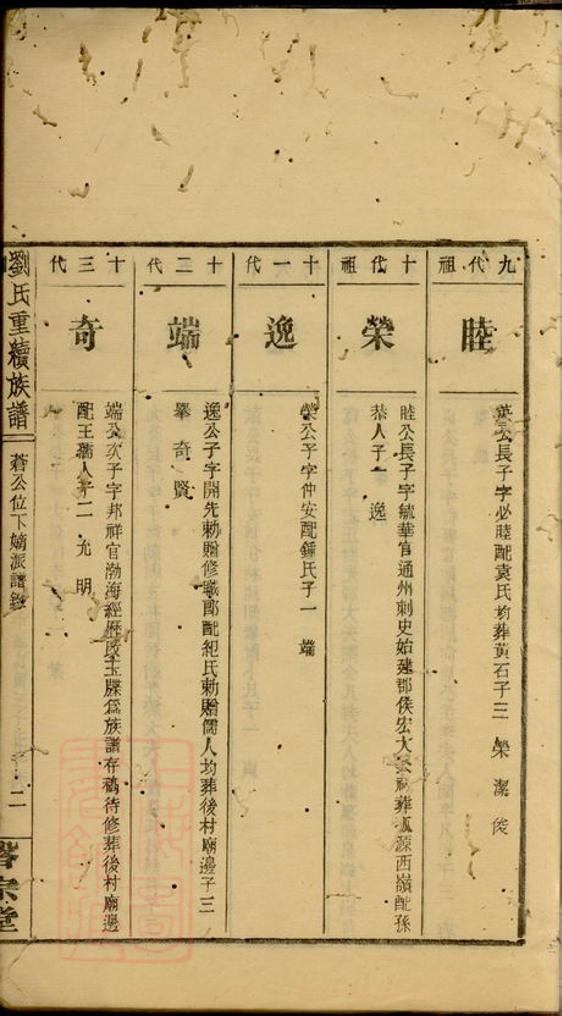 九代祖
睦
英公長子字必睦配袁氏均葬黃石子三 榮 潔 俊
十代祖
榮
睦公長子字毓華官通州刺史始建郡侯宏大公祠葬瓢源西嶺配孫
恭人子一 逸
十一代
逸
榮公子字仲安配鍾氏子一 端
十二代
端
逸公子字開先勅贈修職郎配紀氏勅贈儒人均葬後村廟邊子三
舉 奇 賢
十三代
奇
端公次子字邦祥官渤海經歷改玉牒為族譜存稿待修葬後村廟邊
配王孺人子二 允 明
劉氏重續族譜
蒼公位下嫡派譜錄
二
宗堂